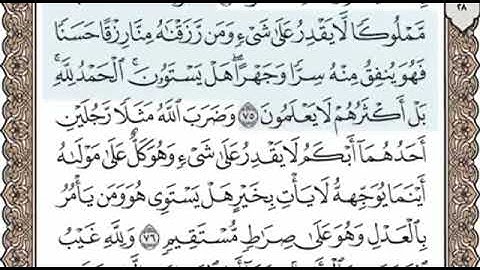 ٢٨
مَّمْلُوكًا لَّا يَقْدِرُ عَلَىٰ شَىْءٍ وَمَن رَّزَقْنَٰهُ مِنَّا رِزْقًا حَسَنًا
فَهُوَ يُنفِقُ مِنْهُ سِرًّا وَجَهْرًا ۖ هَلْ يَسْتَوُۥنَ ۚ ٱلْحَمْدُ لِلَّهِ ۚ
بَلْ أَكْثَرُهُمْ لَا يَعْلَمُونَ ٧٥ وَضَرَبَ ٱللَّهُ مَثَلًا رَّجُلَيْنِ
أَحَدُهُمَآ أَبْكَمُ لَا يَقْدِرُ عَلَىٰ شَىْءٍ وَهُوَ كَلٌّ عَلَىٰ مَوْلَىٰهُ
أَيْنَمَا يُوَجِّههُّ لَا يَأْتِ بِخَيْرٍ ۖ هَلْ يَسْتَوِى هُوَ وَمَن يَأْمُرُ
بِٱلْعَدْلِ ۙ وَهُوَ عَلَىٰ صِرَٰطٍ مُّسْتَقِيمٍ ٧٦ وَلِلَّهِ غَيْبُ